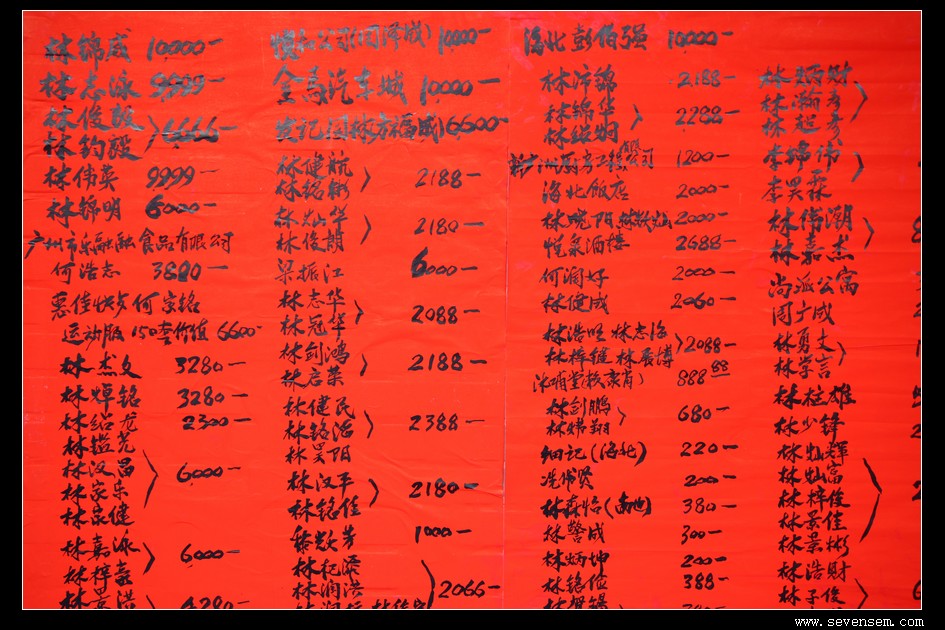 林锦威 10000-
林志泳 9999-
林俊毅
林钧毅 6666-
林伟英 9999-
林锦明 6000-
广州市乐融融食品有限公司
何浩志 3880-
何宗铭
运动服150套价值 6600-
林杰文 3280-
林焯铭 3280-
林绍龙 2300-
林镒尧
林汉昌
林家乐 6000-
林家健
林嘉泳
林梓嘉 6000-
林景洪 4280-
10000-
金马汽车城 10000-
6600-
林健航
林铭彬 2188-
林灿华
林俊朗 2180-
梁振江 6000-
林志华
林冠华 2088-
林剑鸿
林启荣 2188-
林健民
林铭滔 2388-
林昊阳
林汉平
林铭佳 2180-
1000-
林纪添
林润洪 2066-
海北彭伯强 10000-
林沛锦 2188-
林锦华
林继炯 2288-
1200-
海北饭店 2000-
林晓阳 林欽灿 2000-
悦泉酒楼 2688-
何润好 2000-
林健威 2060-
林浩旺 林志海
林梓健 林展博 2088-
888.88
林剑鹏
林炜翔 680-
细记(海北) 220-
冼伟贤 200-
林森怡 380-
林警成 300-
林炳坤 200-
林铭位 388-
林炳财
林瀚彦
林超彦
李锦伟
李昊霖
林伟潮
林嘉杰
尚派公寓
周子成
林勇文
林学言
林柱雄
林少锋
林灿辉
林灿富
林梓俊
林景佳
林景彬
林浩财
林子俊
www.sevensem.com